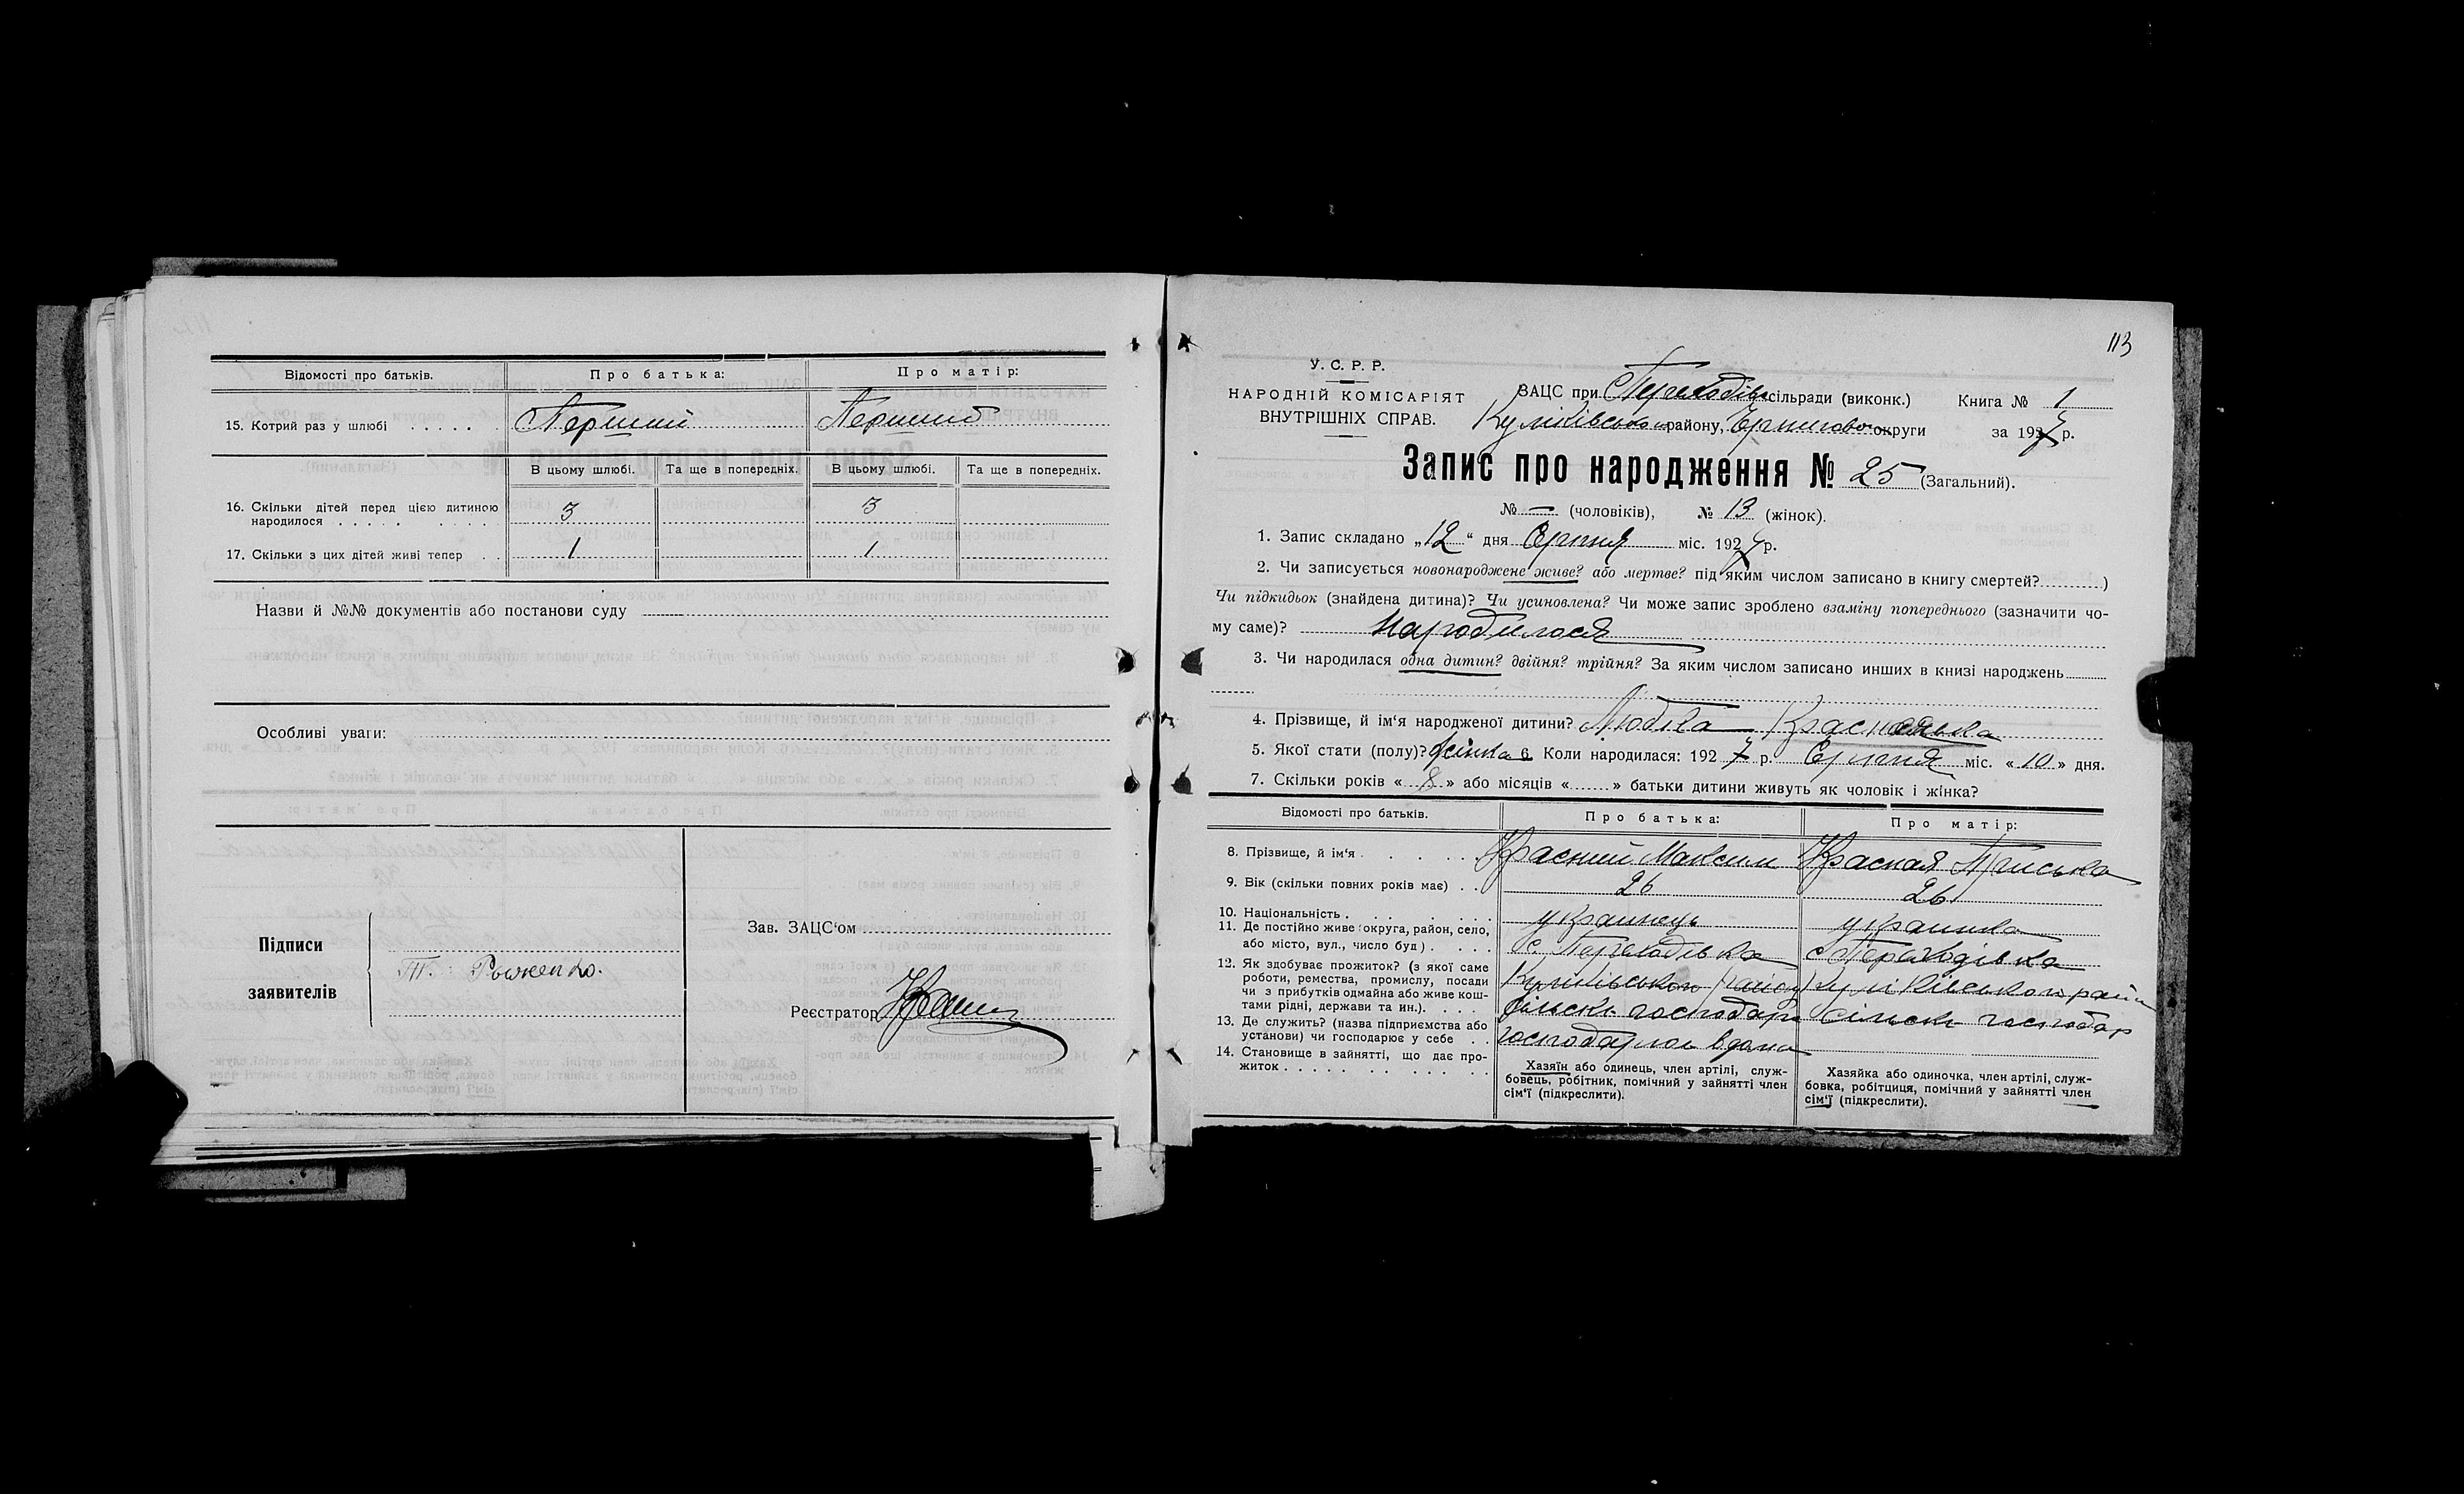 Відомості про батьків.
Про батька:
Про матір:
15. Котрий раз у шлюбі . . . . . .
Перший
Перший
В цьому шлюбі.
Та ще в попередніх.
В цьому шлюбі.
Та ще в попередніх.
16. Скільки дітей перед цією дитиною
народилося . . . . .
3
3
17. Скільки з цих дітей живі тепер . .
1
1
Назви й №№ документів або постанови суду
Особливі уваги:
Підписи
заявителів
Зав. ЗАЦС'ом
Реєстратор
113
У. С. Р. Р.
НАРОДНІЙ КОМІСАРІЯТ
ВНУТРІШНІХ СПРАВ.
ЗАЦС при сільради (виконк.)
Книга № 1
району, округи
за 1927 р.
Запис про народження № 25 (Загальний).
№ — (чоловіків), № 13 (жінок).
1. Запис складано „12“ дня Серпня міс. 1927 р.
2. Чи записується новонароджене живе? або мертве? під яким числом записано в книгу смертей? )
Чи підкидьок (знайдена дитина)? Чи усиновлена? Чи може запис зроблено взаміну попереднього (зазначити чо-
му саме)? народилося
3. Чи народилася одна дитин? двійня? трійня? За яким числом записано инших в книзі народжень
4. Прізвище, й ім'я народженої дитини? Любка
5. Якої стати (полу)? жінка 6. Коли народилася: 1927 р. Серпня міс. « 10 » дня.
7. Скільки років « 8 » або місяців « » батьки дитини живуть як чоловік і жінка?
Відомості про батьків.
Про батька:
Про матір:
8. Прізвище, й ім'я . . . . .
Красний Максим
Красная Приська
9. Вік (скільки повних років має) . .
26
26
10. Національність . . . . . . .
украинець
украинка
11. Де постійно живе (округа, район, село,
або місто, вул., число буд.) . . . .
с. Переходівка
с Переходівка
12. Як здобуває прожиток? (з якої саме
роботи, ремества, промислу, посади
чи з прибутків одмайна або живе кош-
тами рідні, держави та ин.). . . .
Куликівського району
Куликівського район
сільськ господар
сільськ господар
13. Де служить? (назва підприємства або
установи) чи господарює у себе . .
господарює вдома
14. Становище в зайнятті, що дає про-
житок . . . . . . . . . .
Хазяїн або одинець, член артілі, служ-
бовець, робітник, помічний у зайнятті член
сім'ї (підкреслити).
Хазяйка або одиночка, член артілі, служ-
бовка, робітциця, помічний у зайнятті член
сім'ї (підкреслити).